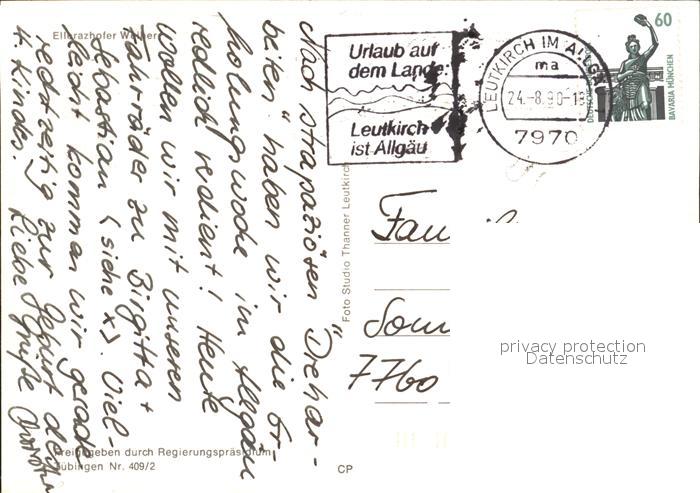 Ellerazhofer Weiher
Nach strapaziösen "Drehar-
beiten" haben wir die Er-
holungswoche im Allgäu
redlich verdient! Heute
wollen wir mit unseren
Fahrräder zu Birgitta +
Sebastian (siehe x). Viel-
leicht kommen wir gerade
rechtzeitig zur Geburt des
4. Kindes. Liebe Grüße
Freigegeben durch Regierungspräsidium
Tübingen Nr. 409/2
Foto Studio Thanner Leutkirch
CP
Urlaub auf
dem Lande:
Leutkirch
ist Allgäu
LEUTKIRCH IM ALLG
ma
24.-8.90-18
7970
60
DEUTSCHE
BAVARIA MÜNCHEN
Fam
Som
7760
privacy protection
Datenschutz